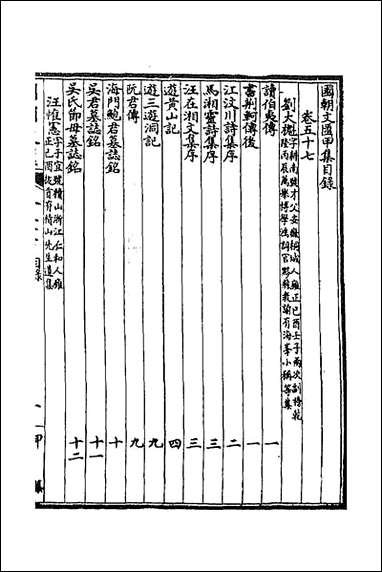 國朝文匯甲集目錄
卷五十七
劉大櫆 字耕南號才父安徽桐城人雍正己酉壬子兩次副榜乾隆丙辰薦舉博學鴻詞官黟縣教諭有海峯小稱等集
讀伯夷傳 一
書荆軻傳後 一
江汶川詩集序 二
馬湘靈詩集序 三
汪在湘文集序 三
遊黃山記 四
遊三遊洞記 九
阮君傳 九
海門鮑君墓誌銘 十
吳君墓誌銘 十一
吳氏節母墓誌銘 十二
汪惟憲 字子宜號積山浙江仁和人雍正己酉拔貢有積山先生遺集
目錄
甲集